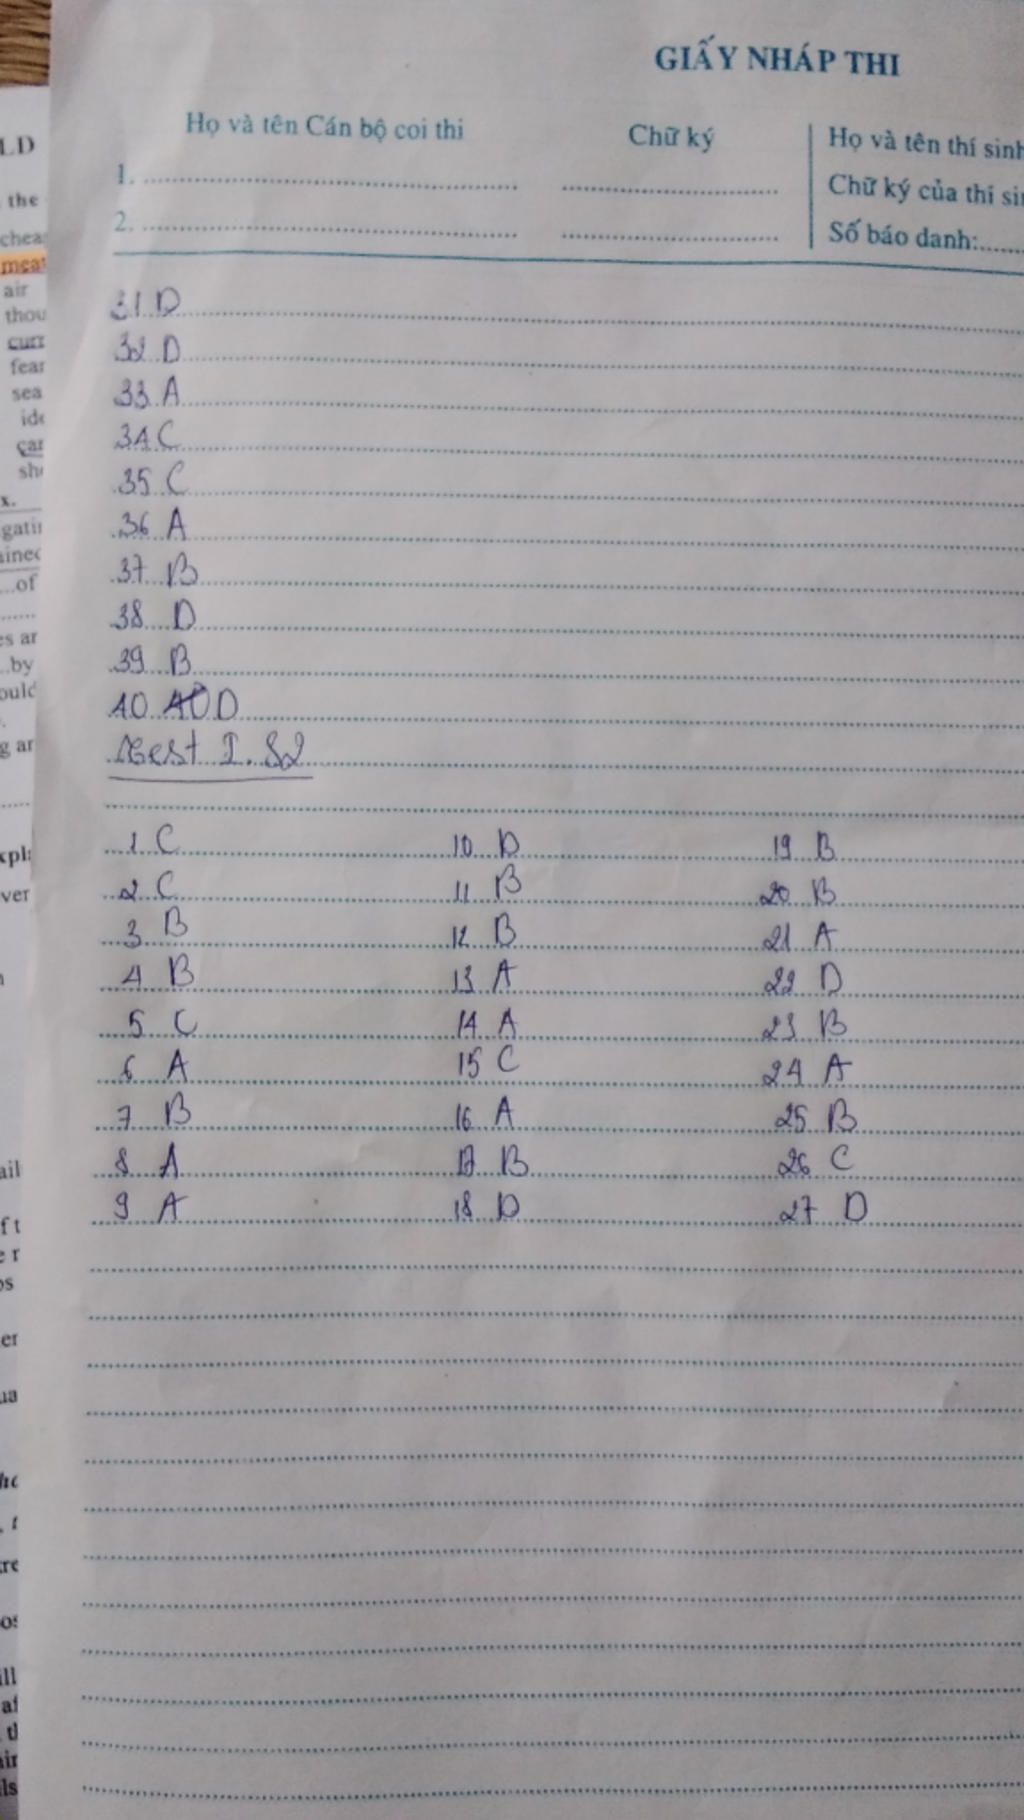 GIẤY NHÁP THI
Họ và tên Cán bộ coi thi Chữ ký Họ và tên thí sinh
1. Chữ ký của thí si
2. Số báo danh:
31 D
32 D
33 A
34 C
35 C
36 A
37 B
38 D
39 B
40 D
Test I. S2
1 C 10 D 19 B
2 C 11 B 20 B
3 B 12 B 21 A
4 B 13 A 22 D
5 C 14 A 23 B
6 A 15 C 24 A
7 B 16 A 25 B
8 A 17 B 26 C
9 A 18 D 27 D
LD
the
chea
meat
air
thou
curr
fear
sea
ide
car
sh
x.
gatin
ained
...of
es ar
..by
ould
g ar
xpl
ver
ail
f t
e r
os
er
ua
he
re
os
ill
af
th
air
ils